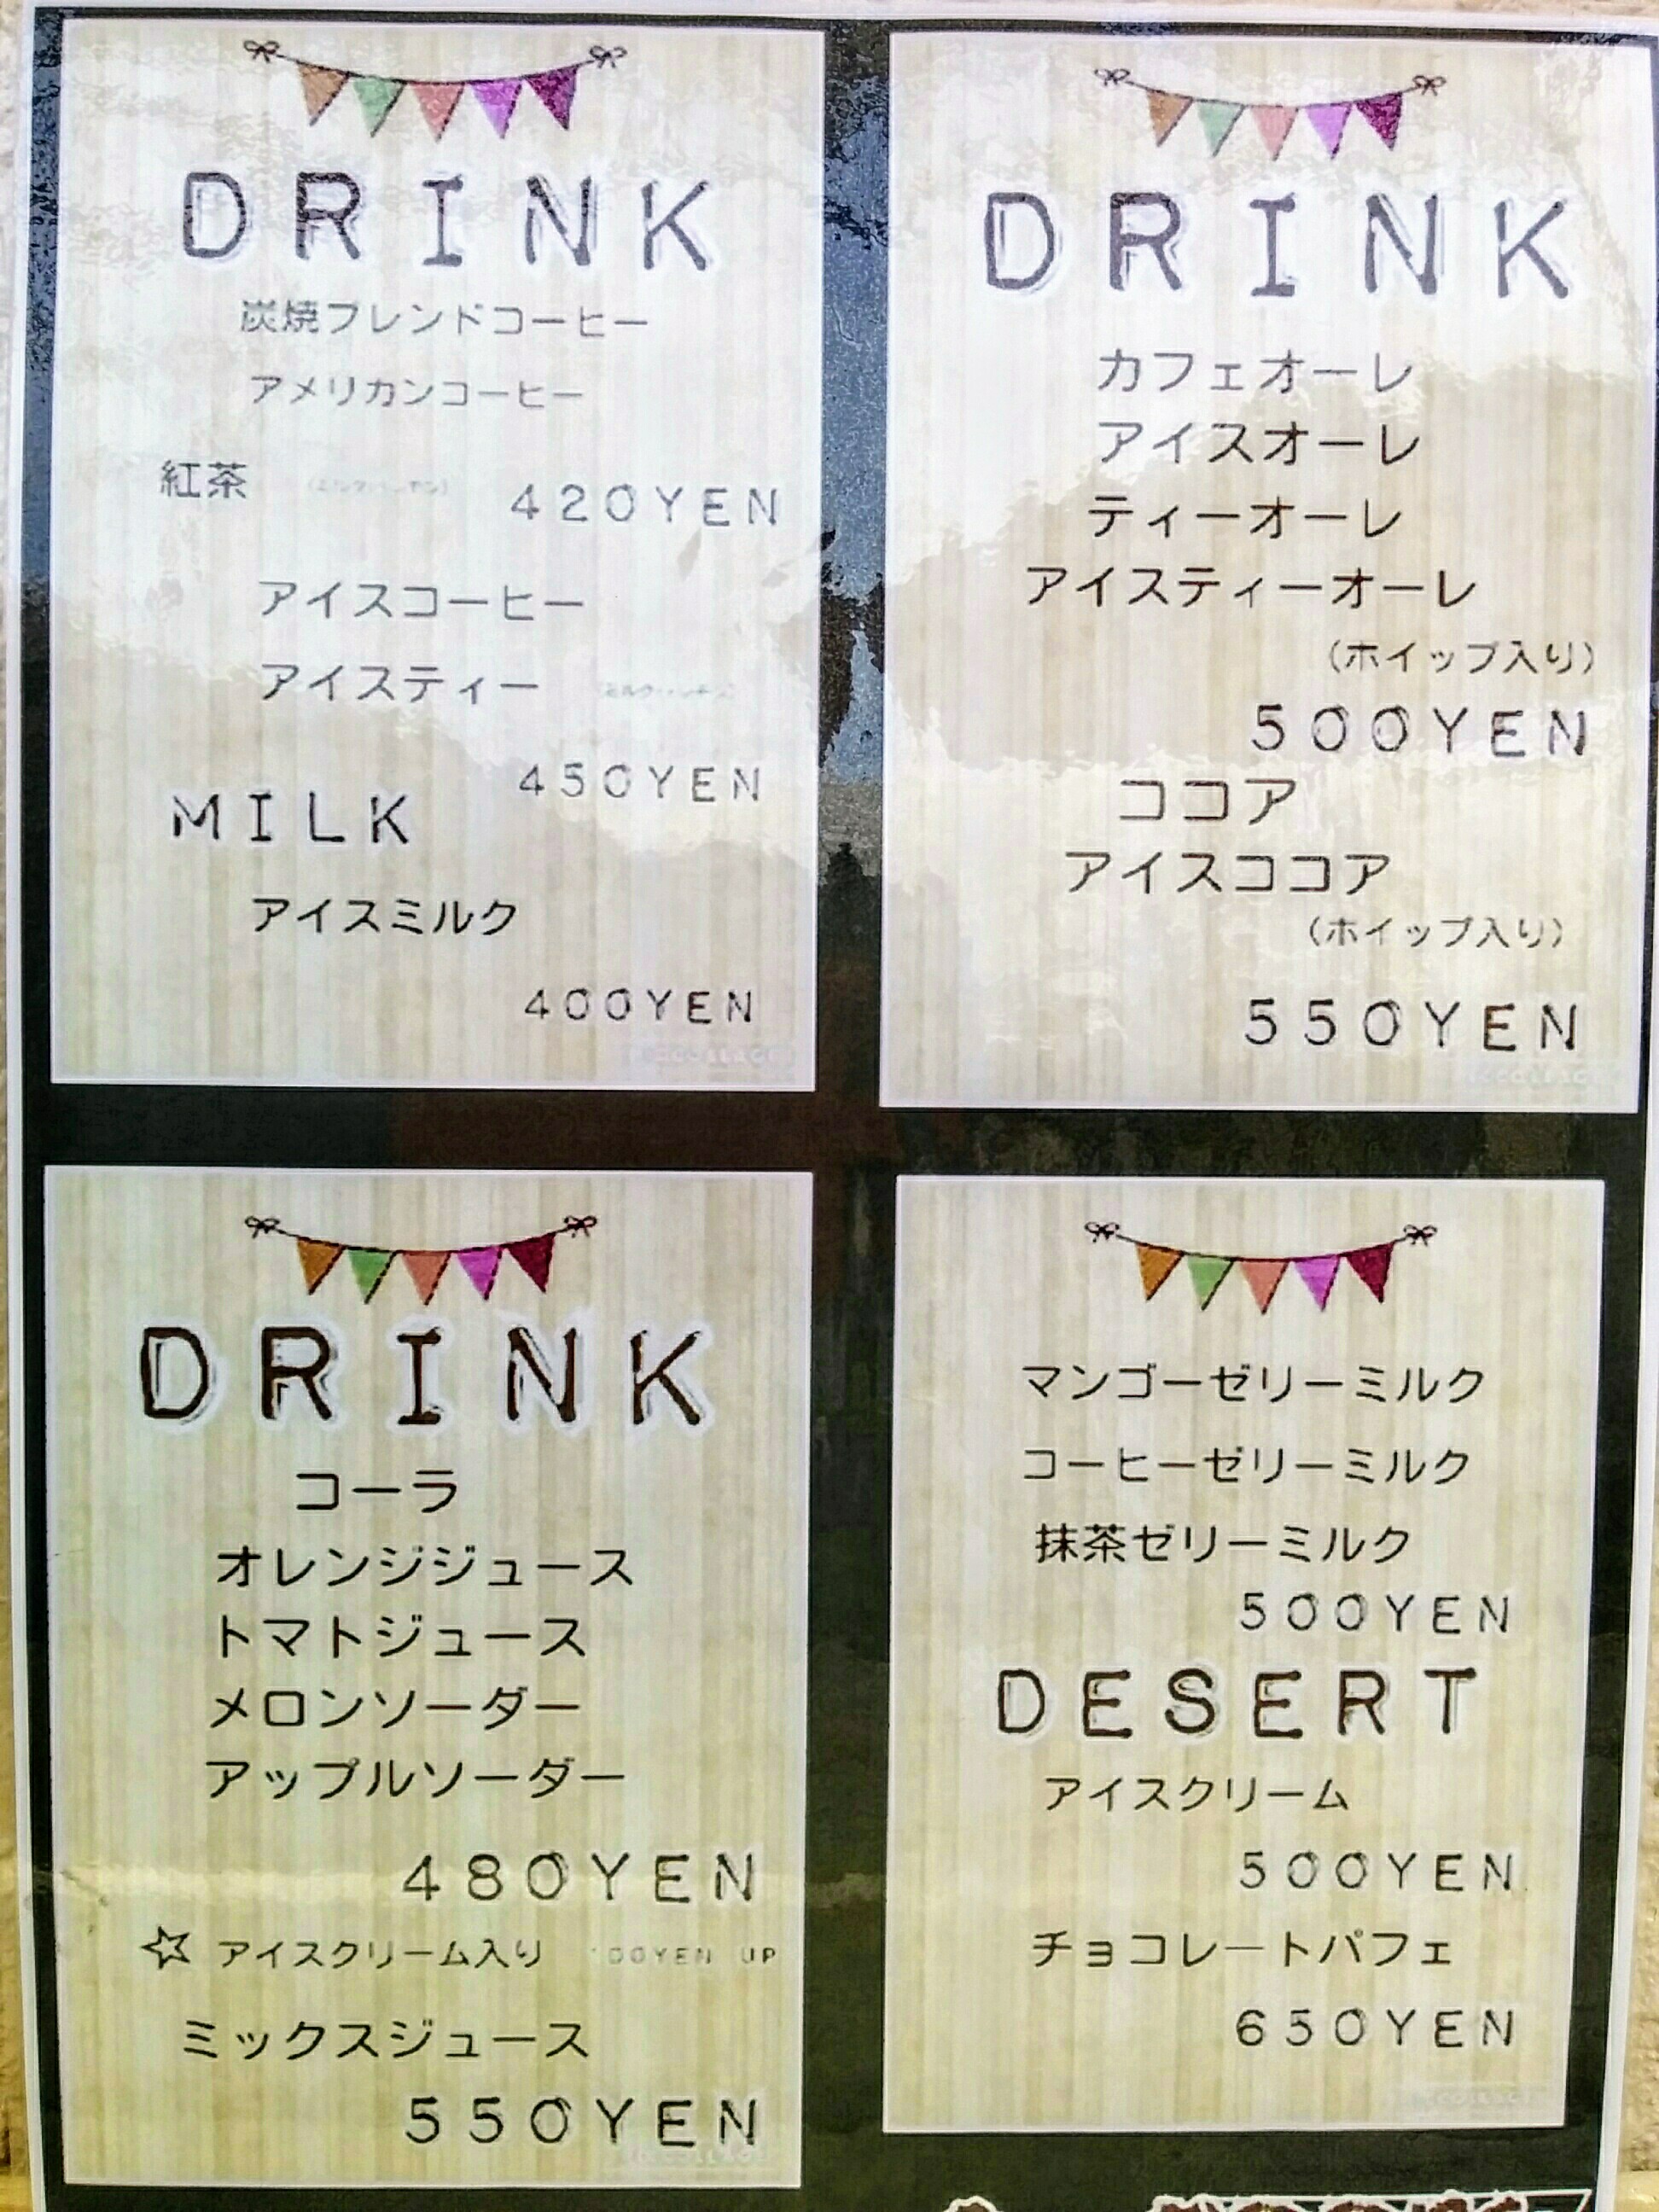 DRINK
炭焼ブレンドコーヒー
アメリカンコーヒー
紅茶
420YEN
アイスコーヒー
アイスティー
450YEN
MILK
アイスミルク
400YEN
DRINK
カフェオーレ
アイスオーレ
ティーオーレ
アイスティーオーレ
(ホイップ入り)
500YEN
ココア
アイスココア
(ホイップ入り)
550YEN
DRINK
コーラ
オレンジジュース
トマトジュース
メロンソーダー
アップルソーダー
480YEN
☆ アイスクリーム入り 100YEN UP
ミックスジュース
550YEN
マンゴーゼリーミルク
コーヒーゼリーミルク
抹茶ゼリーミルク
500YEN
DESERT
アイスクリーム
500YEN
チョコレートパフェ
650YEN